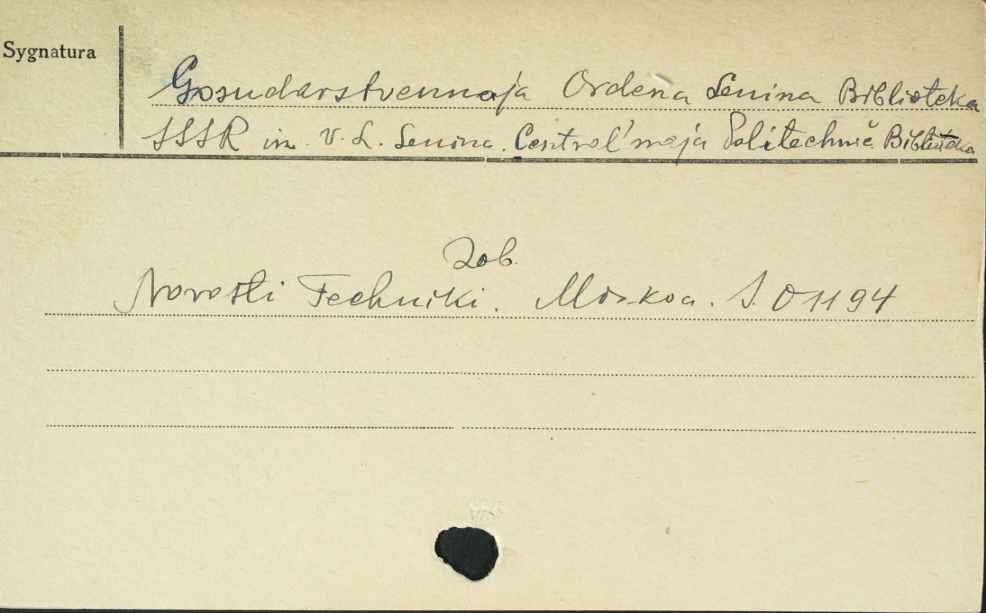 Sygnatura
Gosudarstvennaja Ordena Lenina Biblioteka
SSSR im. V. L. Lenina. Central'naja Politechnič. Biblioteka
Zob.
Novosti Techniki. Moskva. S. 01194